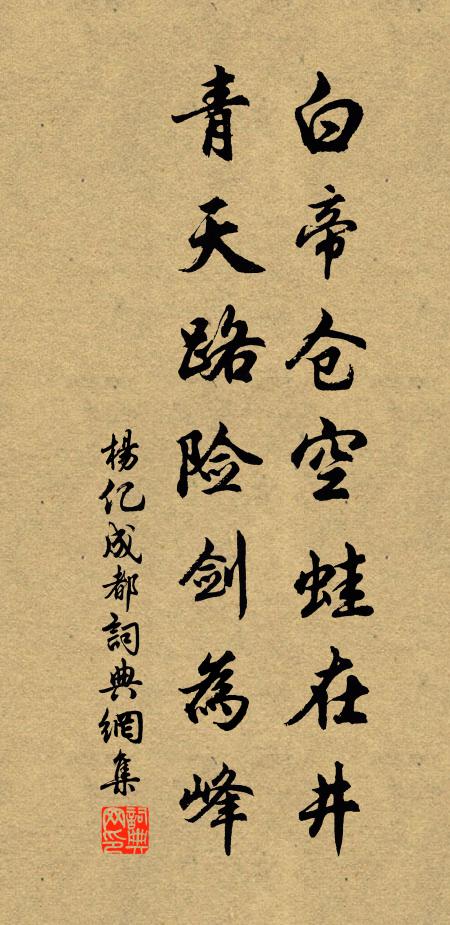 白帝仓空蛙在井
青天路险剑為峰
楊亿成都詞典網集
詞典網印